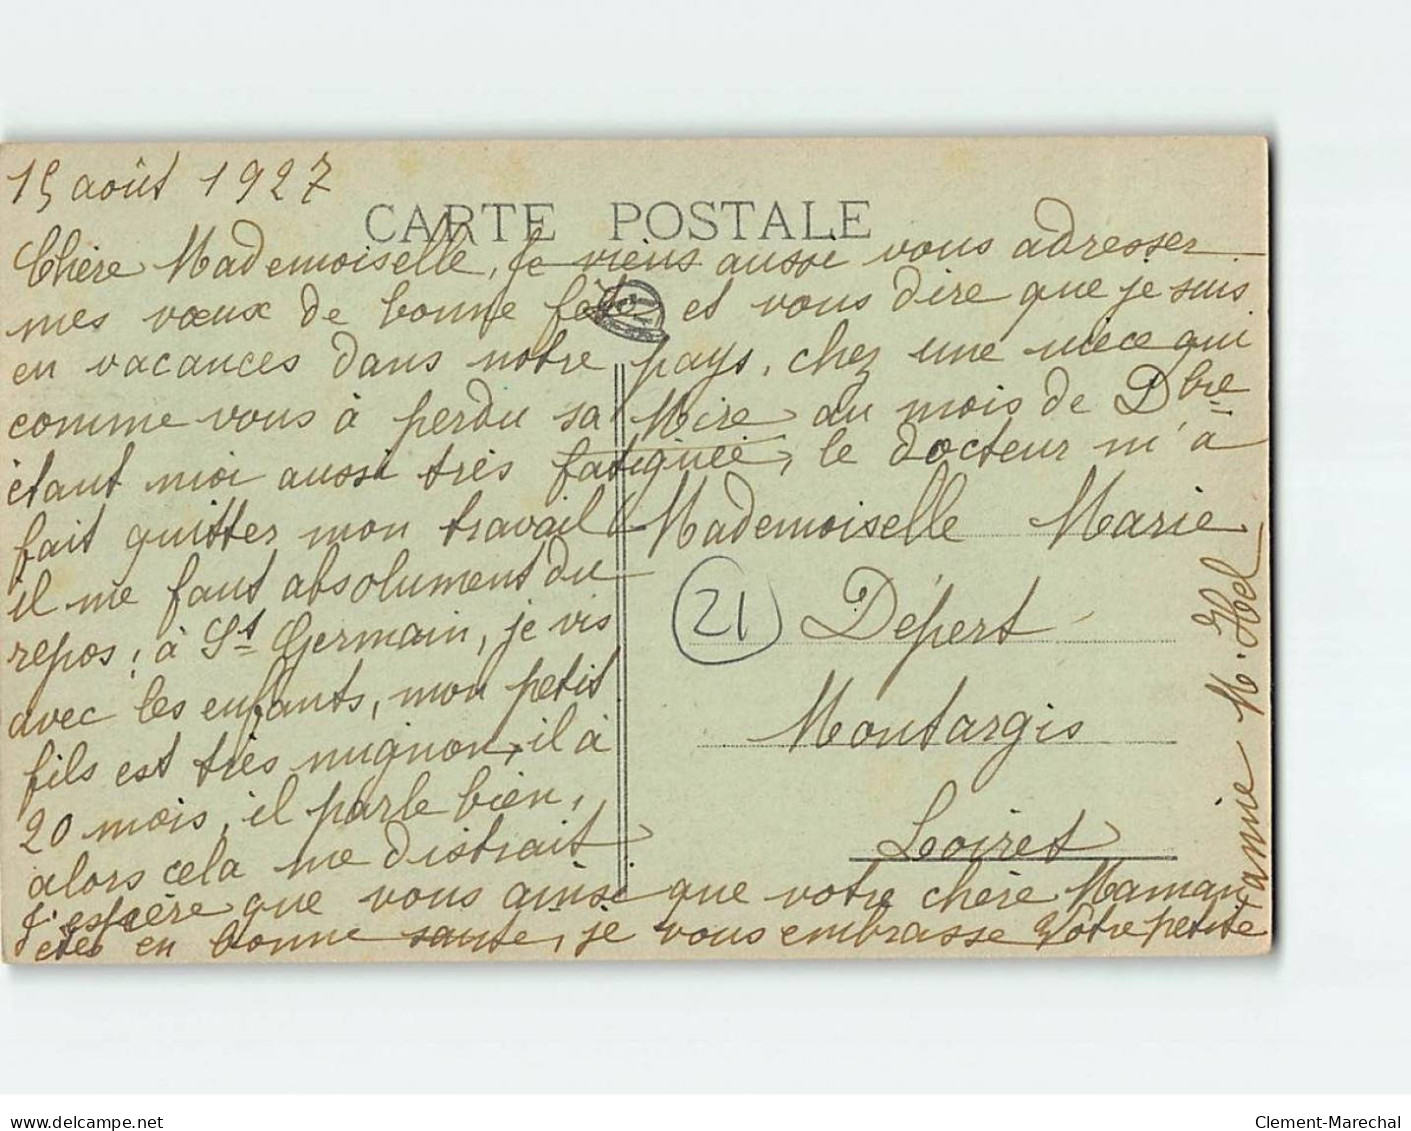 15 août 1927
CARTE POSTALE
Chère Mademoiselle, je viens aussi vous adresser
mes vœux de bonne fête et vous dire que je suis
en vacances dans notre pays, chez une nièce qui
comme vous à perdu sa Mère au mois de Dbre
étant moi aussi très fatiguée, le docteur m'a
fait quitter mon travail
il me faut absolument du
repos, à St Germain, je vis
avec les enfants, mon petit
fils est très mignon, il à
20 mois, il parle bien,
alors cela me distrait
J'espère que vous ainsi que votre chère Maman
êtes en bonne santé, je vous embrasse Vôtre petite
amie M.
Mademoiselle Marie
21
Dépert
Montargis
Loiret
www.delcampe.net
Clement-Marechal